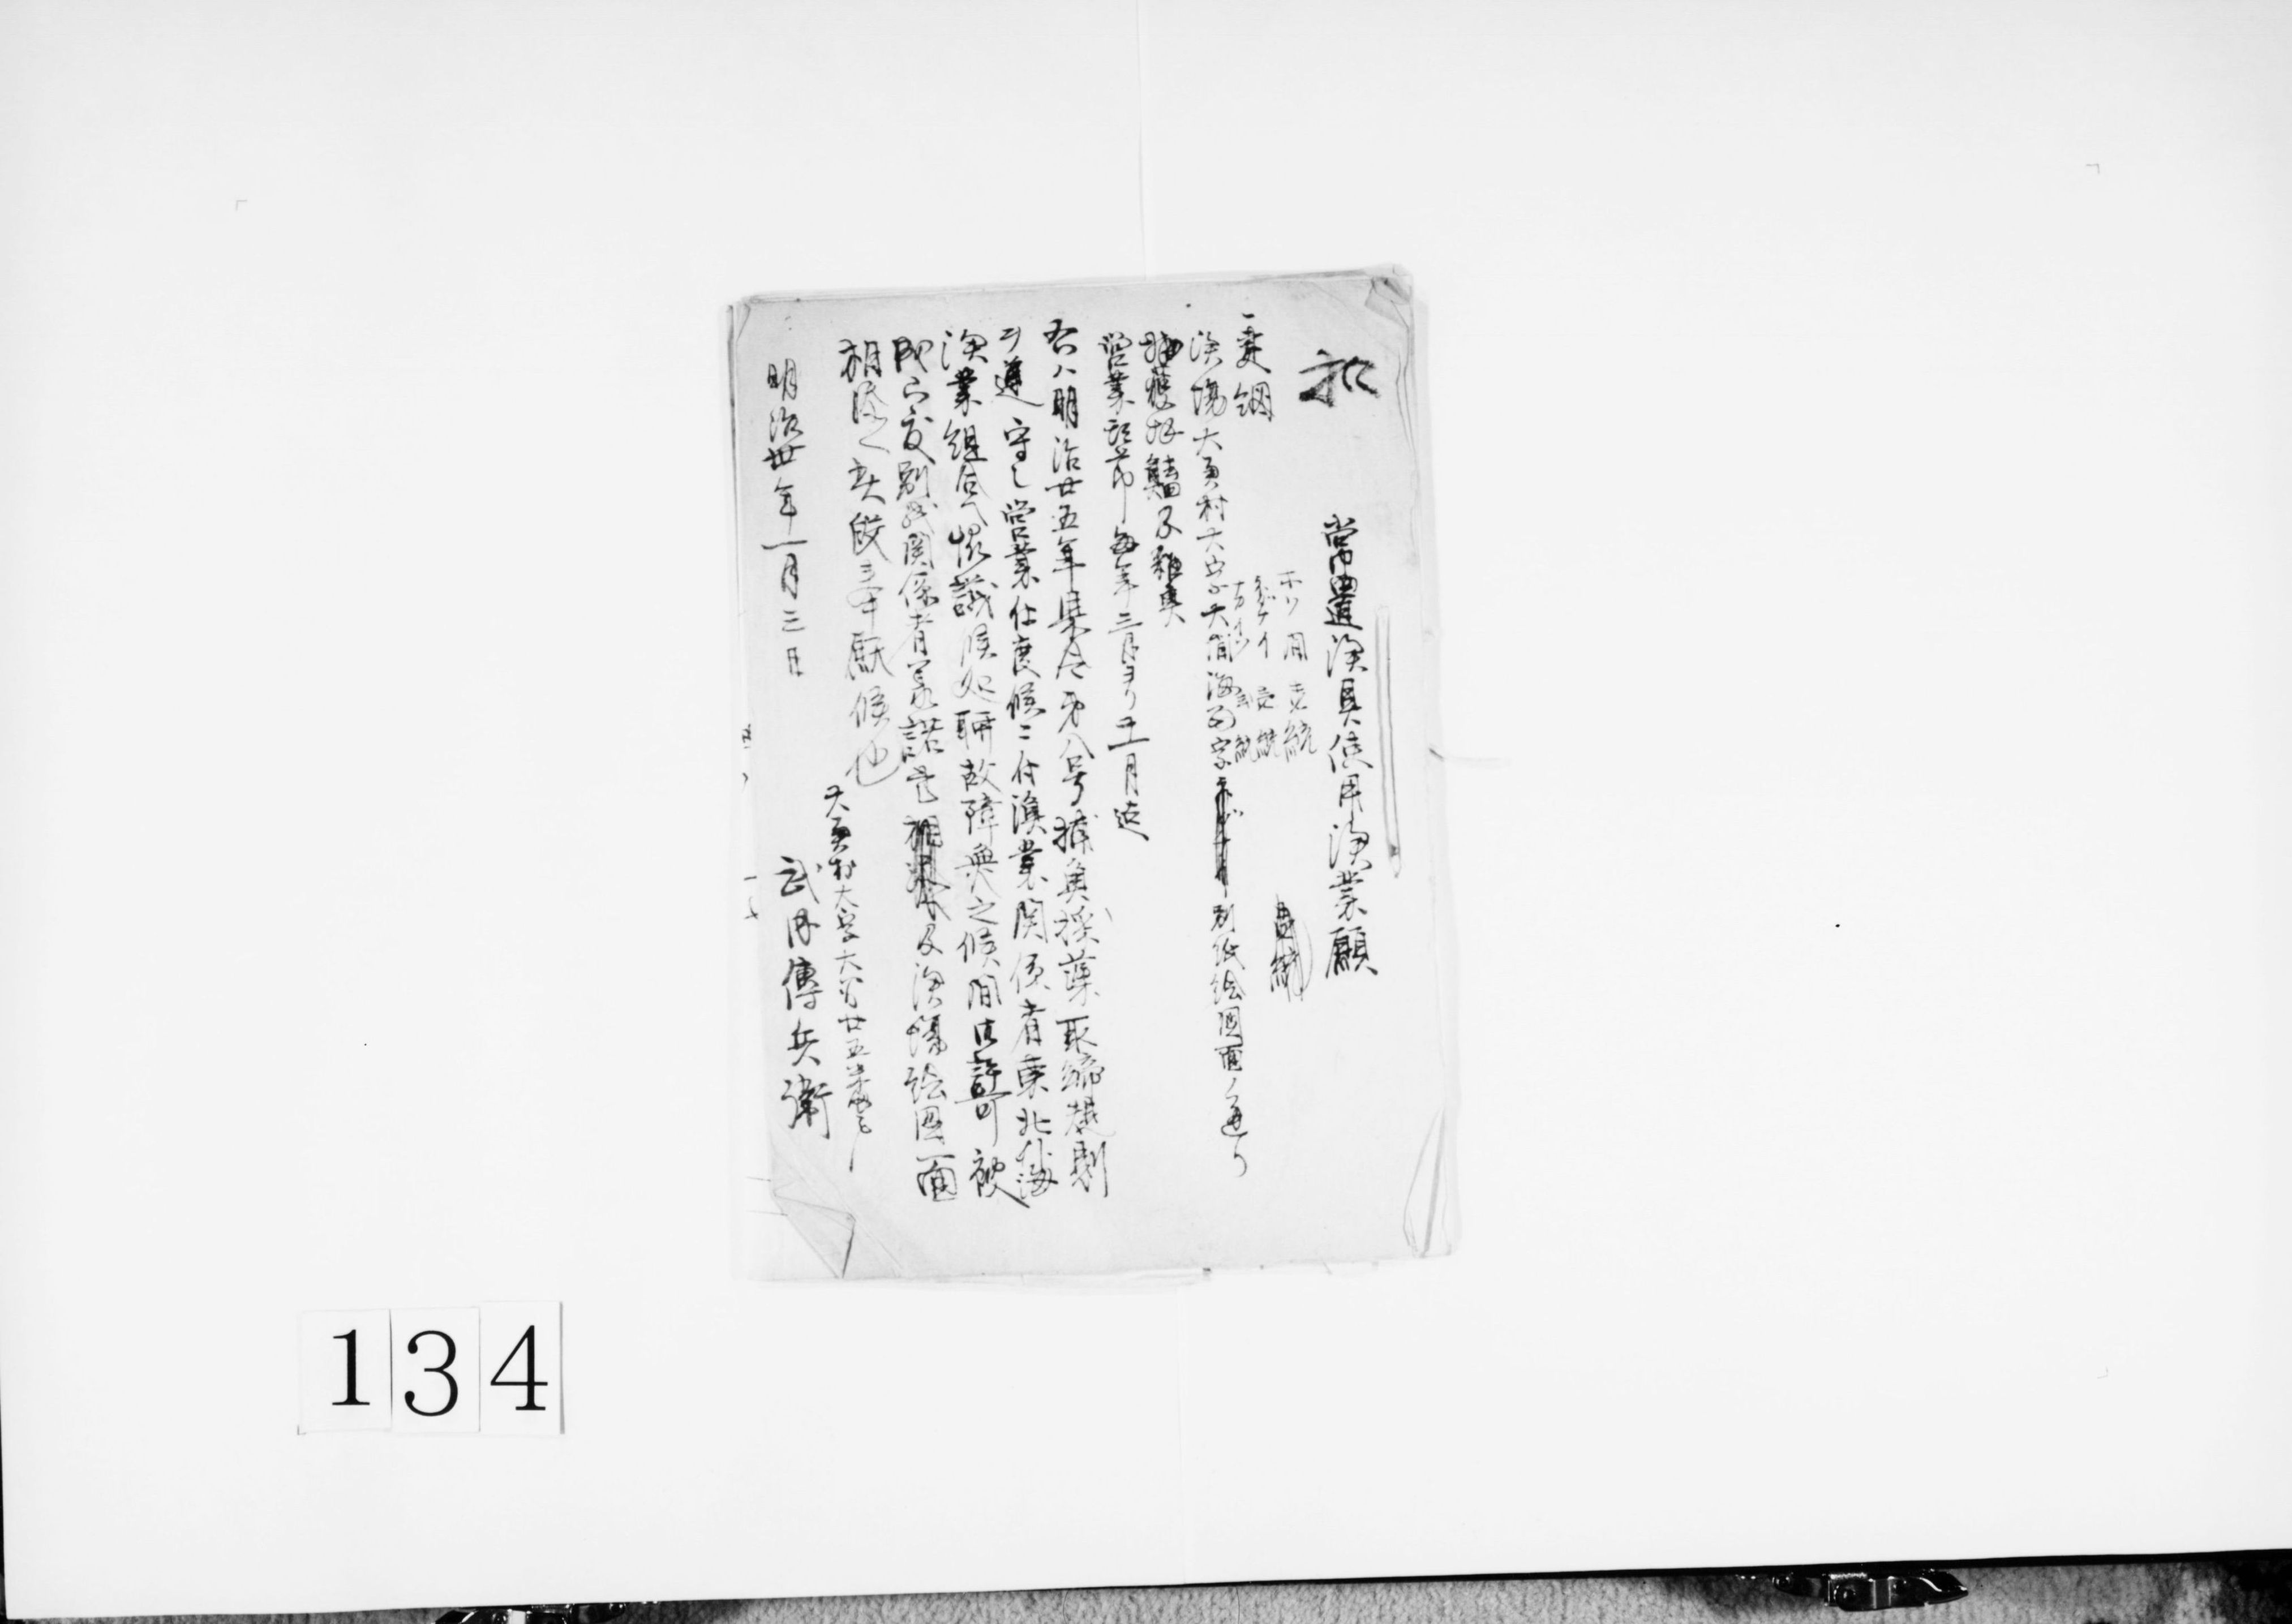 扣
常置漁具使用漁業願
一建網
ホソ間 壱統
壱統
壱統
漁場大奥村大字大間海面字 別紙絵図面ノ通り
捕獲 鱶及雑魚
営業季節毎年三月ヨリ五月迄
右ハ明治廿五年県令第八号捕魚採藻取締規則
ヲ遵守シ営業仕度候ニ付漁業関係者東北海
漁業組合ヘ協議候処聊故障無之候間御許可被
成下度別紙関係者承諾書及漁場絵図面
相添ヘ此段奉願候也
明治卅年一月三日
大奥村大字大間廿五番
武内傳兵衛
134